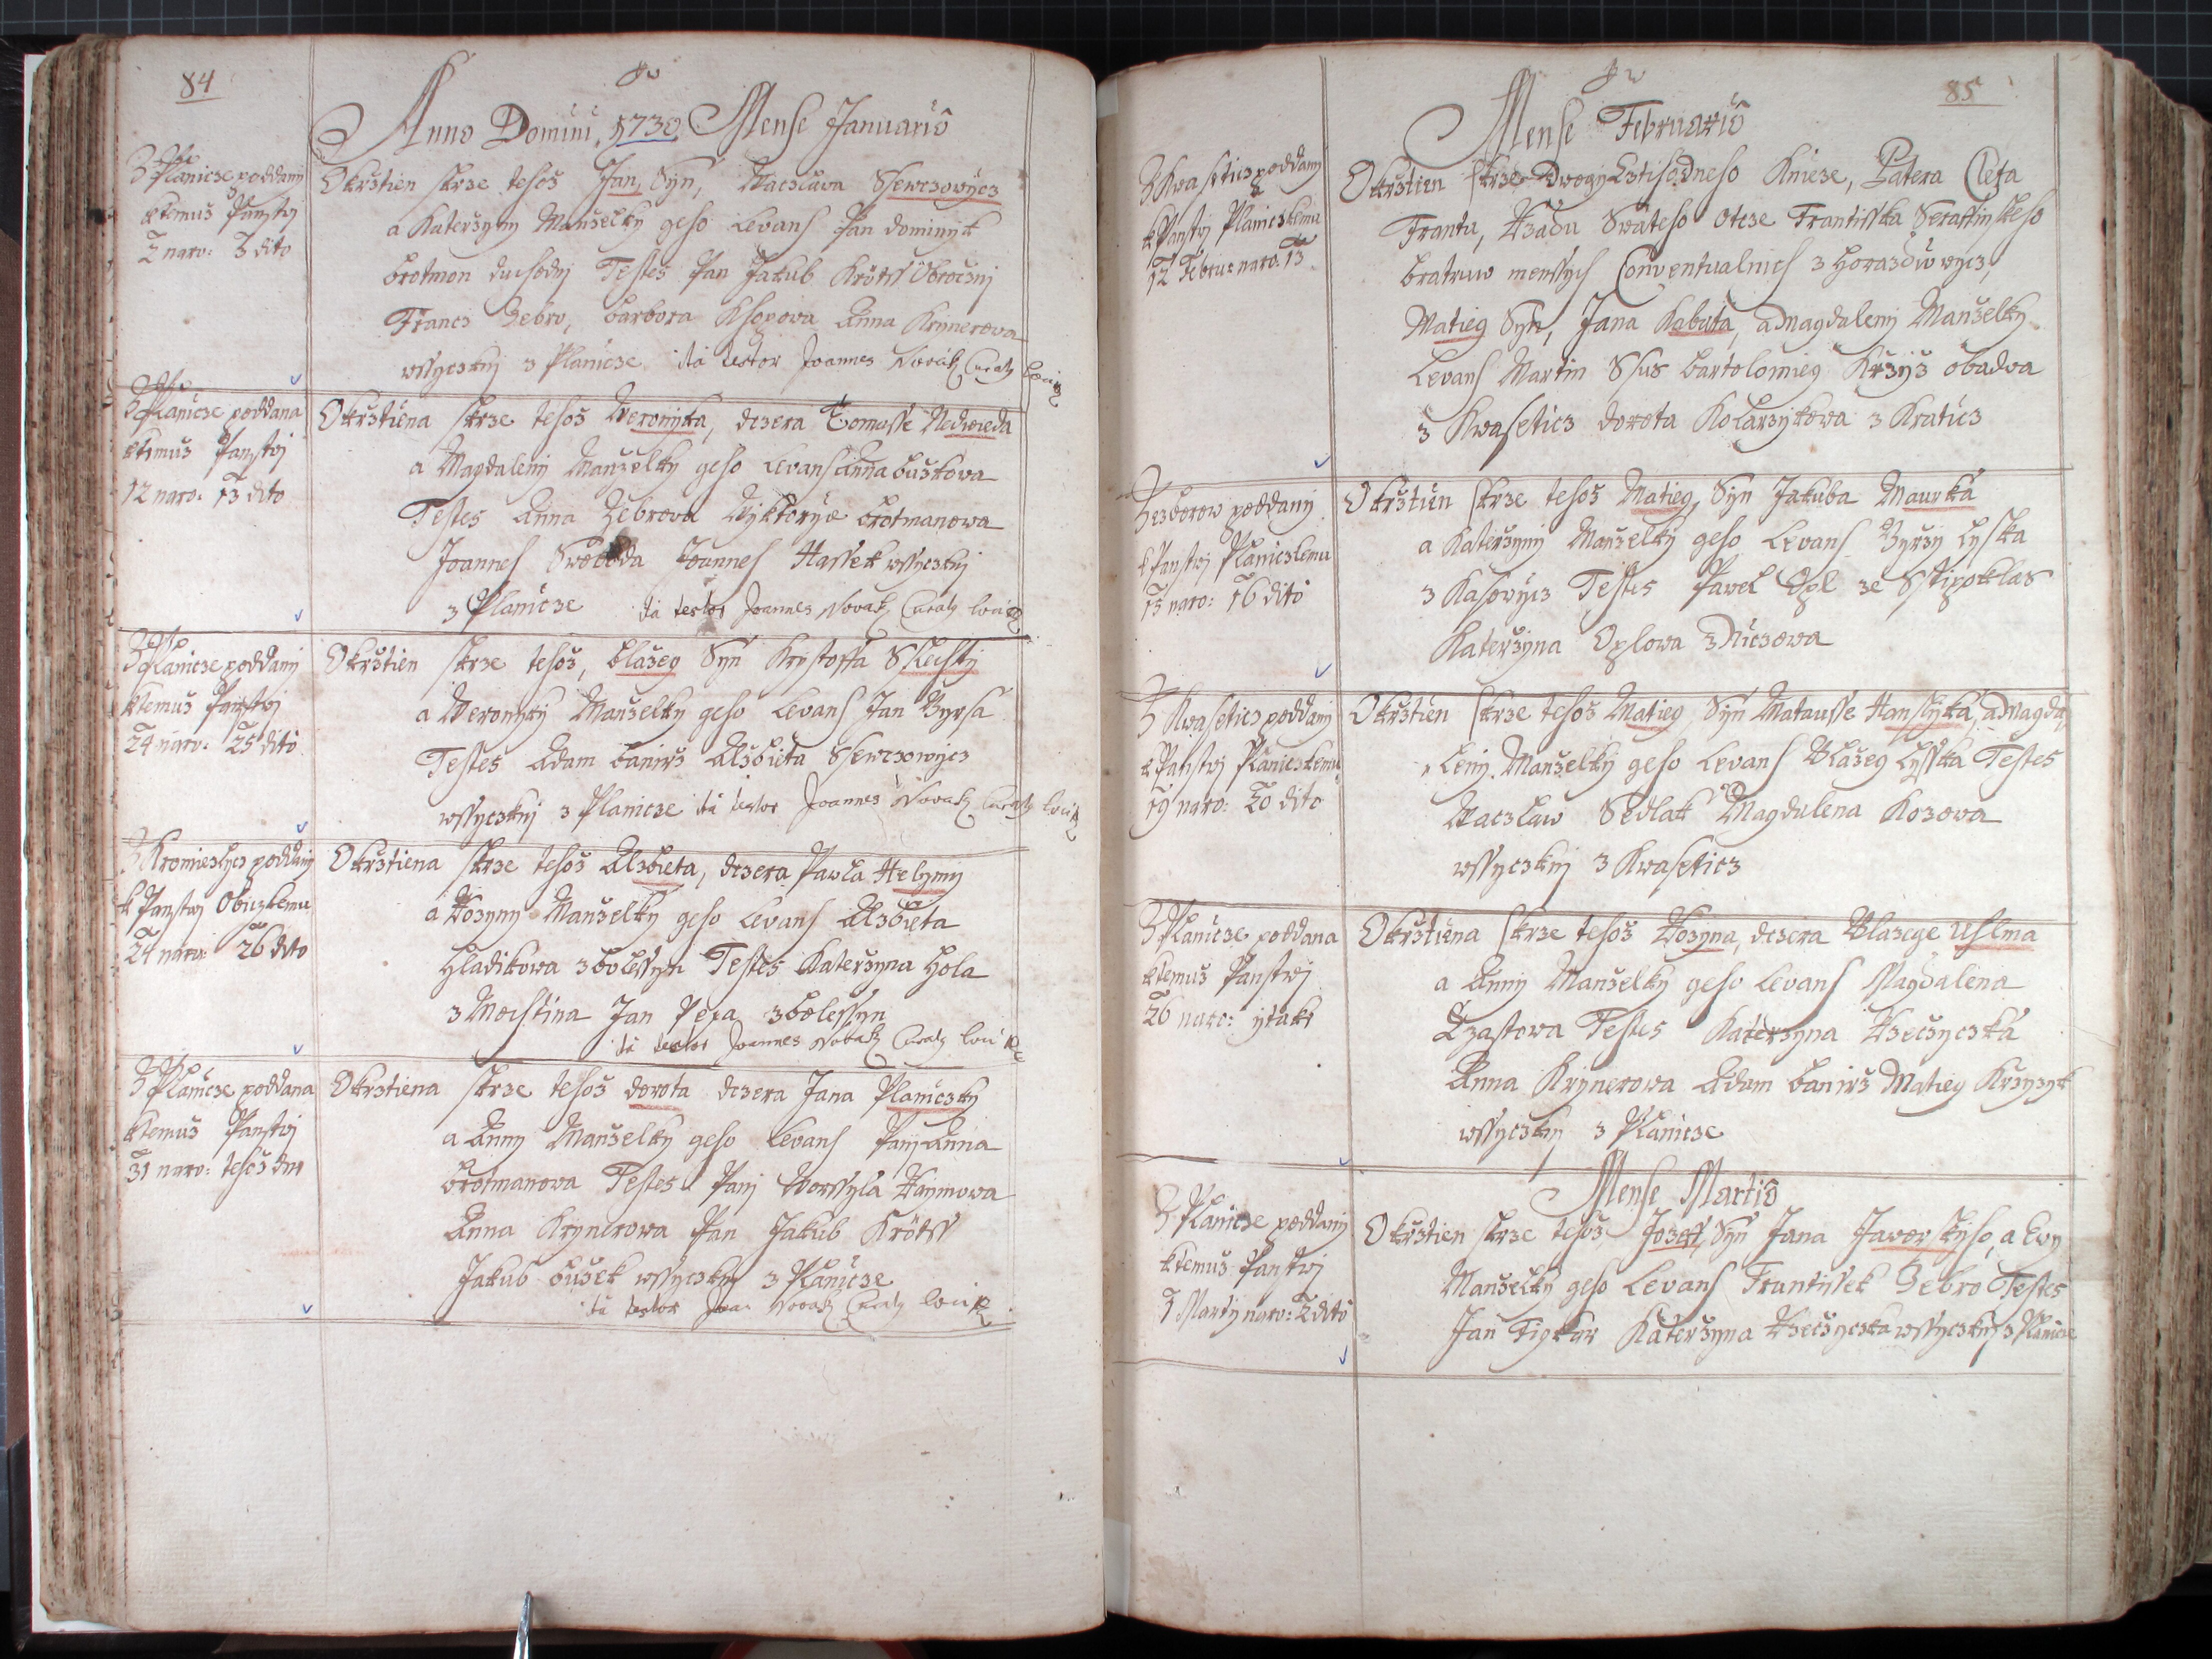 84
Anno Domini 1730 Mense Januario
Z Planicze poddany
k temuž Panstwj
2 naro: 3 dito
Okrztien skrze tehož Jan, Syn, Waczlawa Ssewczowycz
a Katerzyny Manželky geho Levans Pan dominyk
brotmon duchodnj Testes Pan Jakub Krötss Obrocznj
Francz Zebro, barbora Anna Krynerowa
wssyczknj z Planicze ità testor Joannes Novak Curatq
Z Planicze poddana
k temuž Panstwj
12 naro: 13 dito
Okrztiena skrze tehož Weronyka, dczera Tomasse Nedwieda
a Magdaleny Manželky geho Levans Anna bužkowa
Testes Anna Zebrowa Wyktorye brotmanowa
Joannes Swoboda Joannes Hassek wssyczknj
z Planicze ità testor Joannes Novak Curatq
Z Planicze poddany
k temuž Panstwj
24 naro: 25 dito
Okrztien skrze tehož, blažeg Syn Krystoffa Slechty
a Weronyky Manželky geho Levans Jan
Testes Adam banirž Alžbieta Ssewczowycz
wssyczknj z Planicze ità testor Joannes Novak Curatq
Z poddany
k Panstwj
24 naro: 26 dito
Okrztiena skrze tehož Alžbieta, dczera Pawla Helymy
a Rozyny Manželky geho Levans Alžbieta
Hladikowa z bolessyn Testes Katerzyna Hola
z Mochtina Jan Pexa z bolessyn
ità testor Joannes Novak Curatq
Z Planicze poddana
k temuž Panstwj
31 naro: tehož dne
Okrztiena skrze tehož dorota dczera Jana Planiczky
a Anny Manželky geho Levans Panj Anna
brotmanowa Testes Panj Worssyla
Anna Krynerowa Pan Jakub Krötss
Jakub bužek wssyczknj z Planicze
ità testor Joan Novak Curatq
85
Mense Februario
Z Kwaseticz poddany
k Panstwj Planiczkemu
12 Febru: naro: 13
Okrztien skrze Dwogy Cztihodneho Knieze, Patera Cleta
Frantu, Rzadu Swateho Otcze Frantisska Seraffinskeho
bratruw menssych Conventualnich z Horazdiwwycz,
Matieg Syn, Jana Kabuta, a Magdaleny Manželky
Levans Martin Ssus bartolomieg Kržyž obadwa
z Kwaseticz dorota Kolarzykowa z Kraticz
poddany
k Panstwj Planiczkemu
15 naro: 16 dito
Okrztien skrze tehož Matieg, Syn Jakuba Maurka
a Katerzyny Manželky geho Levans Lyska
z Kasowycz Testes Pawel Opl ze Sstipoklas
Katerzyna Oplowa z
Z Kwaseticz poddany
k Panstwj Planiczkemu
19 naro: 20 dito
Okrztien skrze tehož Matieg Syn Matausse Hanslyka, a Magda
leny Manželky geho Levans Blažeg Lysska Testes
Waczlaw Sedlak Magdalena Kozowa
wssyczknj z Kwaseticz
Z Planicze poddana
k temuž Panstwj
26 naro: ytakt
Okrztiena skrze tehož Rozyna, dczera Blazege Uhlma
a Anny Manželky geho Levans Magdalena
Testes Katerzyna Rzeczyczka
Anna Krynerowa Adam banirž Matieg Kržyzyk
wssyczknj z Planicze
Mense Martio
Z Planicze poddany
k temuž Panstwj
1 Marty naro: 2 dito
Okrztien skrze tehož Jozeff, Syn Jana Jaworskyho, a Ewy
Manželky geho Levans Frantissek Zebro Testes
Jan Katerzyna Rzeczyczka wssyczknj z Planicze